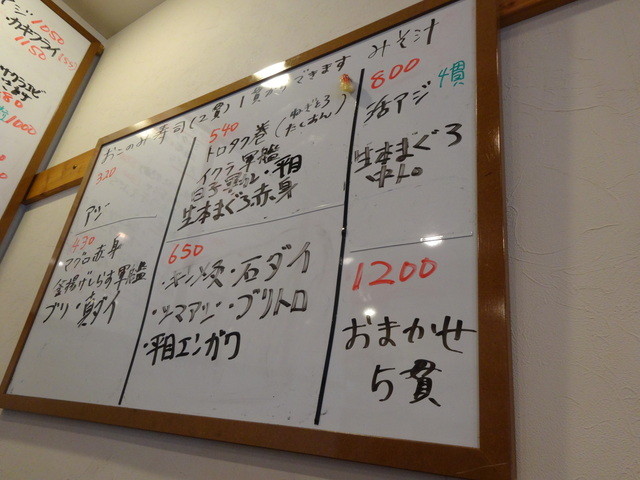 アジ 1050
カキフライ
1150
1000
おこのみ寿司(2貫)1貫からできます
みそ汁
320
アジ
430
マグロ赤身
釜揚げしらす軍艦
ブリ・真ダイ
540
トロタク巻(ねぎとろ
たくあん)
イクラ軍艦
平目
生本まぐろ赤身
650
石ダイ
・シマアジ・ブリトロ
・平目エンガワ
800 4貫
活アジ
生本まぐろ
中トロ
1200
おまかせ
5貫